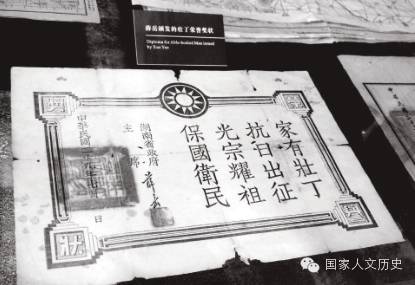 薛岳颁发的壮丁荣誉奖状
Diploma for Able-bodied Man issued
by Xue Yue
家有壯丁
抗日出征
光宗耀祖
保國衛民
湖南省政府
主席 薛岳
中華民國 日
獎
狀
国家人文历史